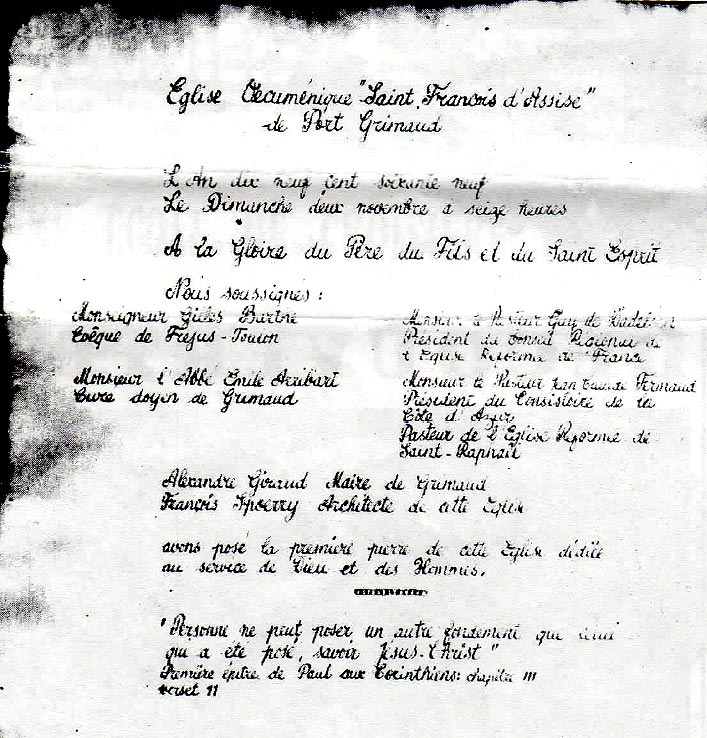 Eglise Oecuménique "Saint François d'Assise"
de Port Grimaud
L'An dix neuf cent soixante neuf
Le Dimanche deux novembre à seize heures
A la Gloire du Père du Fils et du Saint Esprit
Nous soussignés :
Monseigneur Gilles Barthe
Evêque de Fréjus-Toulon
Monsieur l'Abbé Emile Arribart
Curé doyen de Grimaud
Monsieur le Pasteur Guy de
Président du Conseil Régional de
l'Eglise Réformée de France
Monsieur le Pasteur Jean Claude Fermaud
Président du Consistoire de la
Côte d'Azur
Pasteur de l'Eglise Réformée de
Saint-Raphaël
Alexandre Giraud Maire de Grimaud
François Spoerry Architecte de cette Eglise
avons posé la première pierre de cette Eglise dédiée
au service de Dieu et des Hommes.
"Personne ne peut poser un autre fondement que celui
qui a été posé, savoir Jésus-Christ"
Première épitre de Paul aux Corinthiens: chapitre III
verset 11